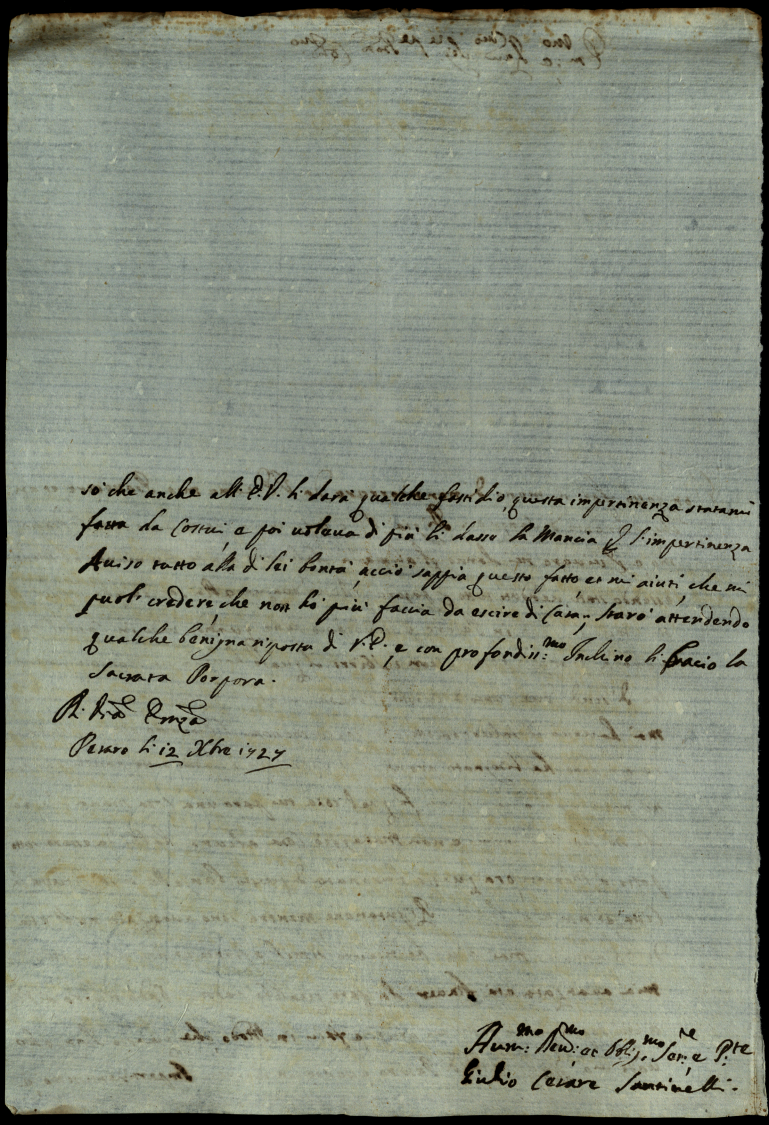 sò che anche all' E.V. li darà qualche fastidio, questa impertinenza statami
fatta da Costui, e poi voleva di più li dassi la Mancia p l'impertinenza
Aviso tutto alla di lei bontà, acciò sappia questo fatto, et mi aiuti, che mi
puol credere, che non hò più faccia da escire di Casa; starò attendendo
qualche benigna riposta di V.E., e con profondiss:mo Inchino li bacio la
Sacrata Porpora.
Pesaro li 12 Xbre 1727
Hum:mo Dev:mo et Oblig:mo Ser:re e P:te
Giulio Cesare Santinelli.